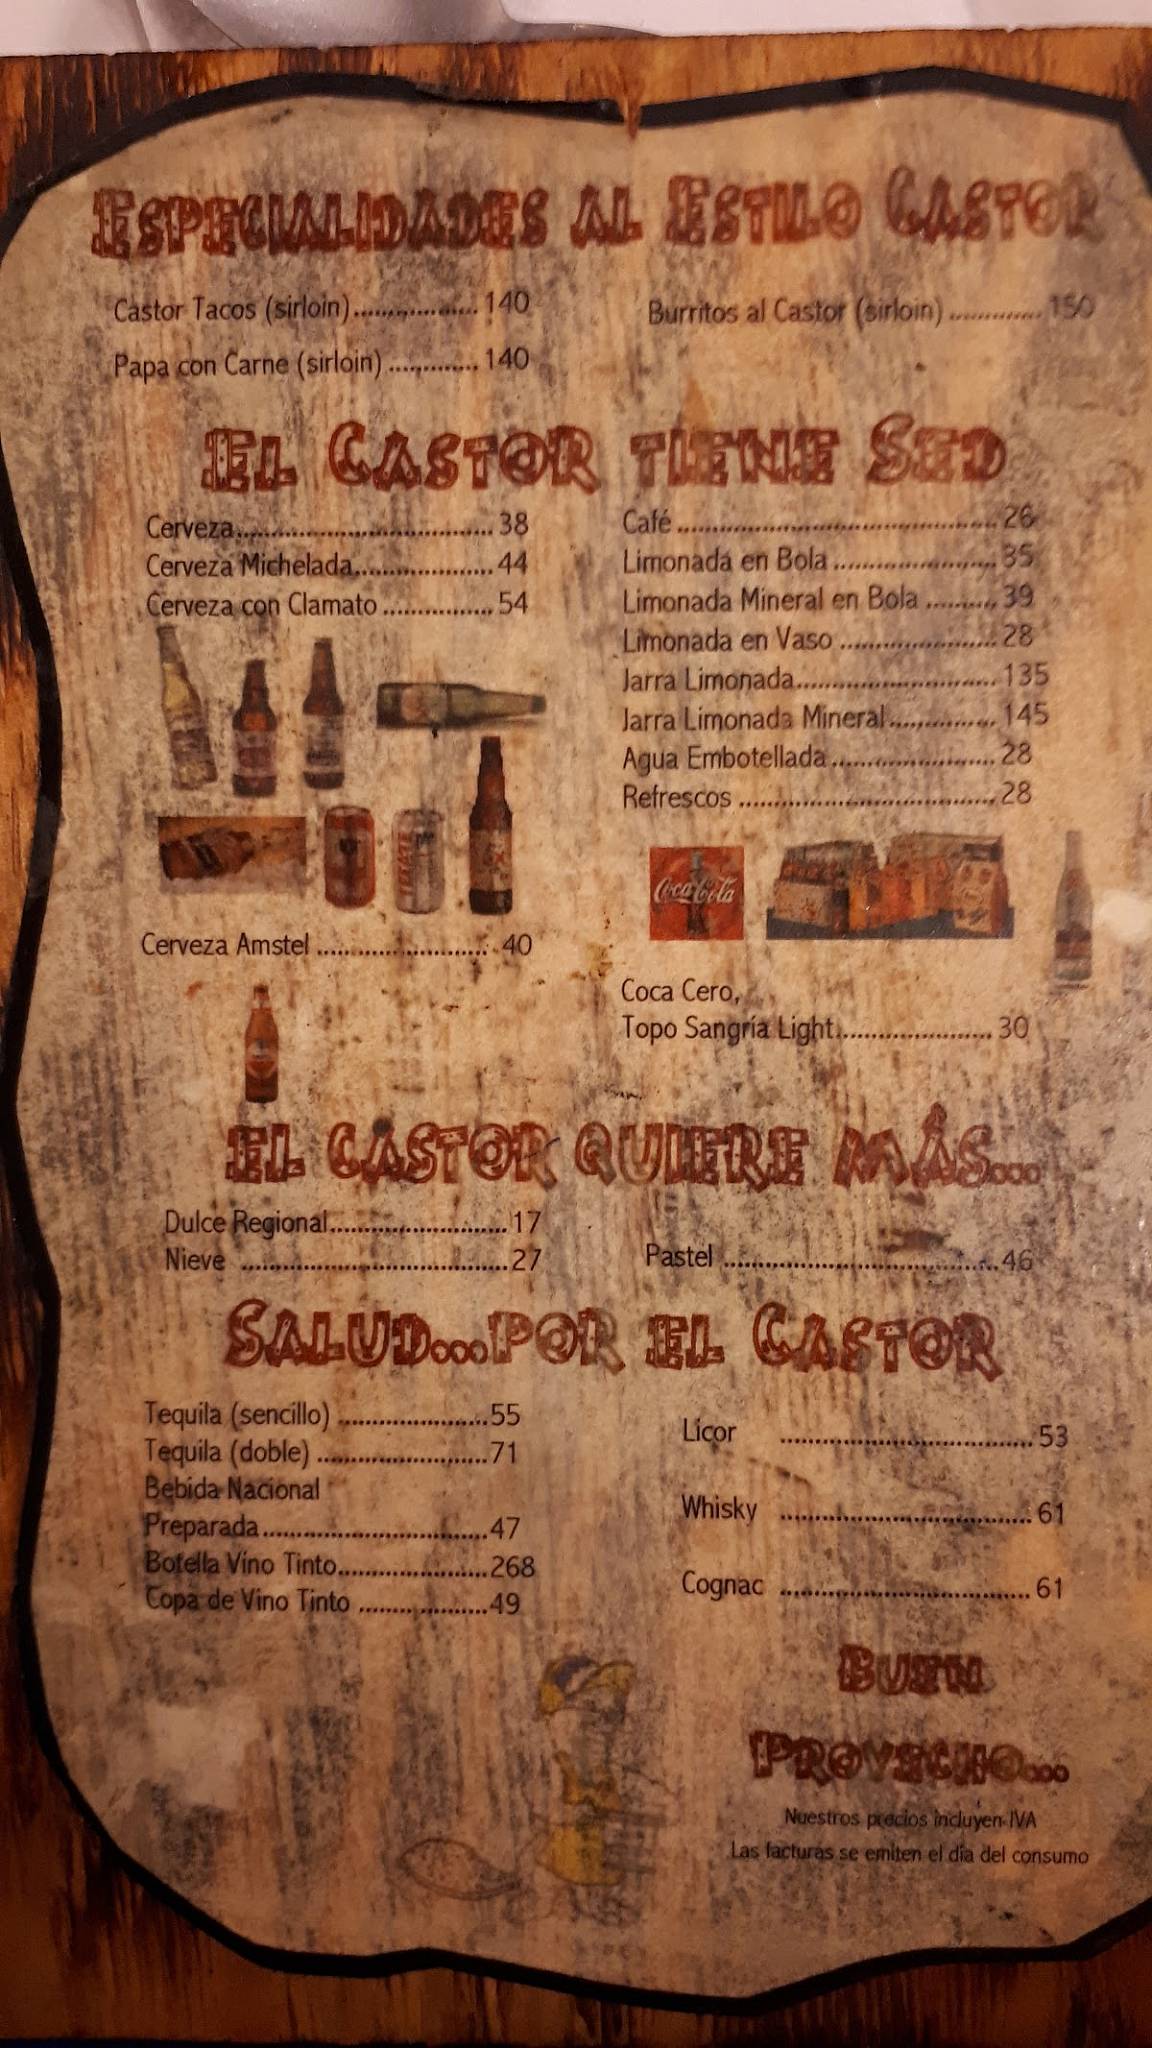 Especialidades al Estilo Castor
Castor Tacos (sirloin).................. 140
Papa con Carne (sirloin) ............. 140
Burritos al Castor (sirloin) ............. 150
El Castor tiene Sed
Cerveza...................................... 38
Cerveza Michelada..................... 44
Cerveza con Clamato ................ 54
Cerveza Amstel .......................... 40
Café ................................................ 26
Limonada en Bola ......................... 35
Limonada Mineral en Bola ........... 39
Limonada en Vaso ........................ 28
Jarra Limonada.............................. 135
Jarra Limonada Mineral................ 145
Agua Embotellada......................... 28
Refrescos ...................................... 28
Coca-Cola
TECATE
Coca Cero,
Topo Sangría Light....................... 30
El Castor quiere más...
Dulce Regional........................... 17
Nieve ........................................ 27
Pastel .......................................... 46
Salud...por el Castor
Tequila (sencillo) ...................... 55
Tequila (doble) .......................... 71
Bebida Nacional
Preparada.................................. 47
Botella Vino Tinto...................... 268
Copa de Vino Tinto ................... 49
Licor ...................................... 53
Whisky ...................................... 61
Cognac ...................................... 61
Buen
Provecho...
Nuestros precios incluyen IVA
Las facturas se emiten el día del consumo